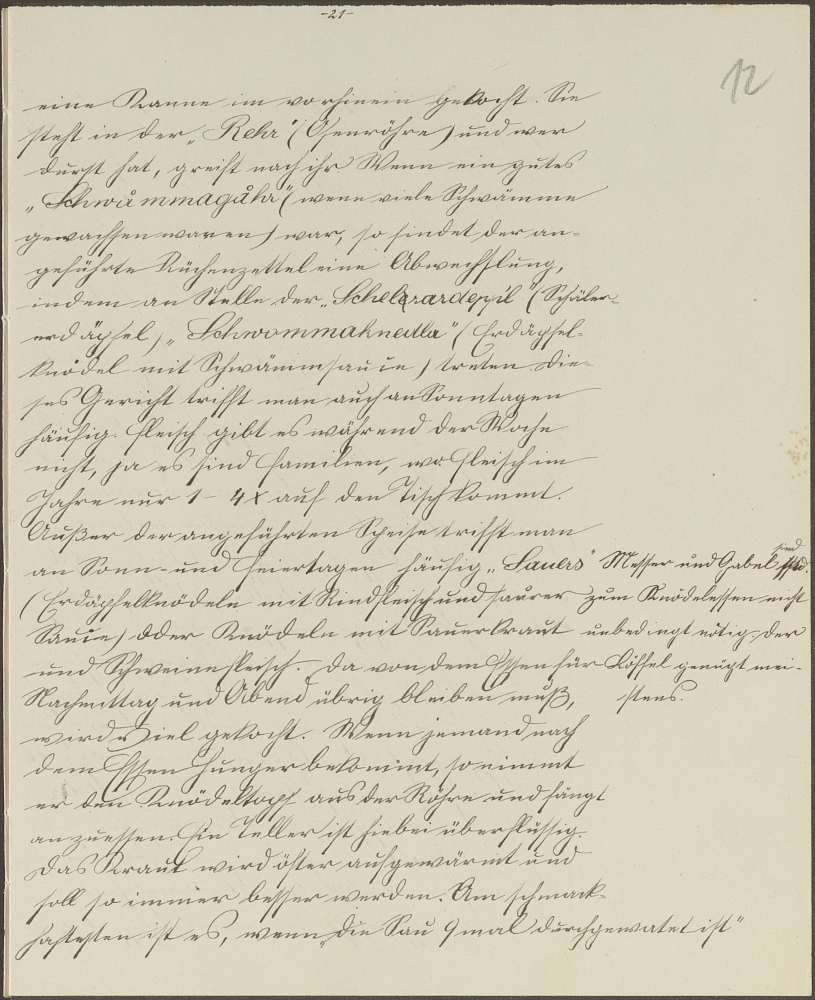 -21-
12
eine Kanne im vorhinein gekocht. Sie
steht in der „Rehr" (Ofenröhre) und wer
Durst hat, greift nach ihr. Wenn ein gutes
„Schwåmmagåhr" (wenn viele Schwämme
gewachsen waren) war, so findet der an-
geführte Küchenzettel eine Abwechslung,
indem an Stelle der „Schelerardeppil" (Schäler-
erdäpfel) „Schwommakneilla" (Erdäpfel-
knödel mit Schwämmsauce) treten. Die-
ses Gericht trifft man auch an Sonntagen
häufig. Fleisch gibt es während der Woche
nicht, ja es sind Familien, wo Fleisch im
Jahre nur 1 - 4x auf den Tisch kommt.
Außer der angeführten Speise trifft man
an Sonn- und Feiertagen häufig „Sauers"
(Erdäpfelknödeln mit Rindfleisch und saurer
Sauce) oder Knödeln mit Sauerkraut
und Schweinefleisch. Da von dem Essen für
Nachmittag und Abend übrig bleiben muß,
wird viel gekocht. Wenn jemand nach
dem Essen Hunger bekommt, so nimmt
er den Knödeltopf aus der Röhre und fängt
an zu essen. Ein Teller ist hiebei überflüssig.
Das Kraut wird öfter aufgewärmt und
soll so immer besser werden. Am schmack-
haftesten ist es, wenn „die Sau 9mal durchgewatet ist"
Messer und Gabel sind
zum Knödelessen nicht
unbedingt nötig. Der
Löffel genügt mei-
stens.